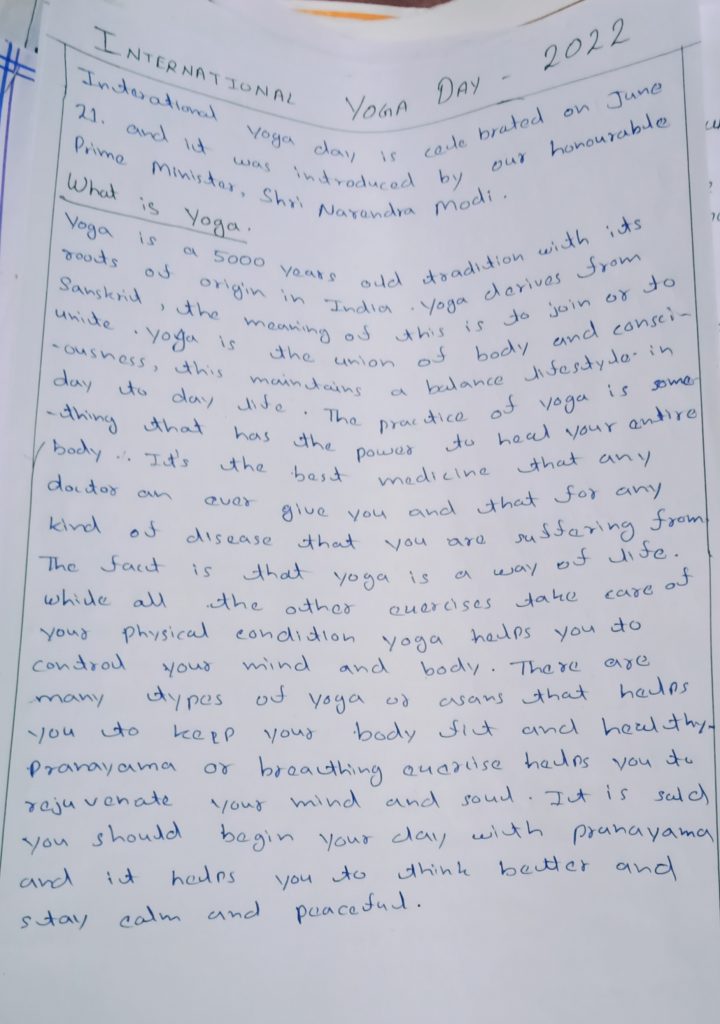 INTERNATIONAL YOGA DAY - 2022
Interational yoga day is celebrated on June
21. and it was introduced by our honourable
Prime Minister, Shri Narendra Modi.
What is Yoga.
Yoga is a 5000 years old tradition with its
roots of origin in India. Yoga derives from
Sanskrit, the meaning of this is to join or to
unite. Yoga is the union of body and consci-
-ousness, this maintains a balance lifestyle in
day to day life. The practice of yoga is some-
-thing that has the power to heal your entire
body. It's the best medicine that any
doctor an ever give you and that for any
kind of disease that you are suffering from
The fact is that yoga is a way of life.
while all the other exercises take care of
your physical condition yoga helps you to
control your mind and body. There are
many types of yoga or asans that helps
you to keep your body fit and healthy.
Pranayama or breathing exercise helps you to
rejuvenate your mind and soul. It is said
you should begin your day with pranayama
and it helps you to think better and
stay calm and peaceful.